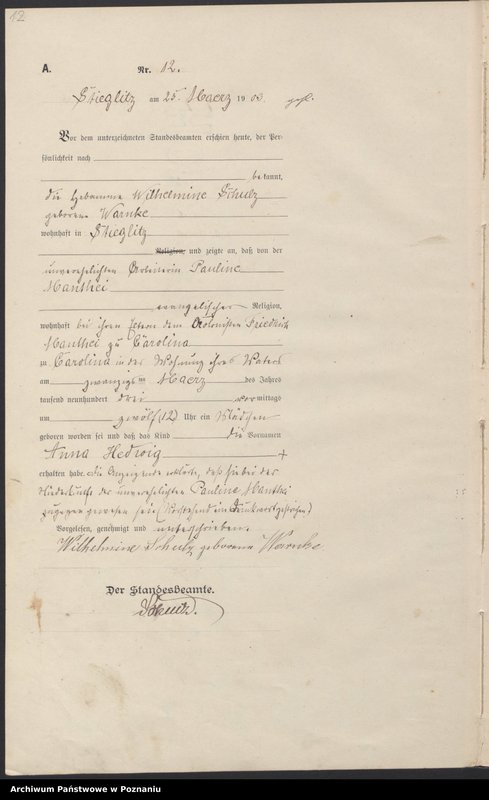 12
A. Nr. 12.
Stieglitz am 25. Maerz 1903.
Vor dem unterzeichneten Standesbeamten erschien heute, der Per-
sönlichkeit nach
bekannt,
die Hebamme Wilhelmine Schulz
geborene Warnke
wohnhaft in Stieglitz
Religion, und zeigte an, daß von der
unverehelichten Arbeiterin Pauline
Manthei
evangelischer Religion,
wohnhaft bei ihren Eltern dem Kolonisten Friedrich
Manthei zu Carolina
zu Carolina in der Wohnung ihres Vaters
am zwanzigsten Maerz des Jahres
tausend neunhundert drei vormittags
um zwölf (12) Uhr ein Mädchen
geboren worden sei und daß das Kind die Vornamen
Anna Hedwig
erhalten habe. Die Anzeigende erklärte, daß sie bei der
Niederkunft der unverehelichten Pauline Manthei
zugegen gewesen sei. (Vorstehend ein Druckwort gestrichen)
Vorgelesen, genehmigt und unterschrieben.
Wilhelmine Schulz geborene Warnke.
Der Standesbeamte.
Archiwum Państwowe w Poznaniu